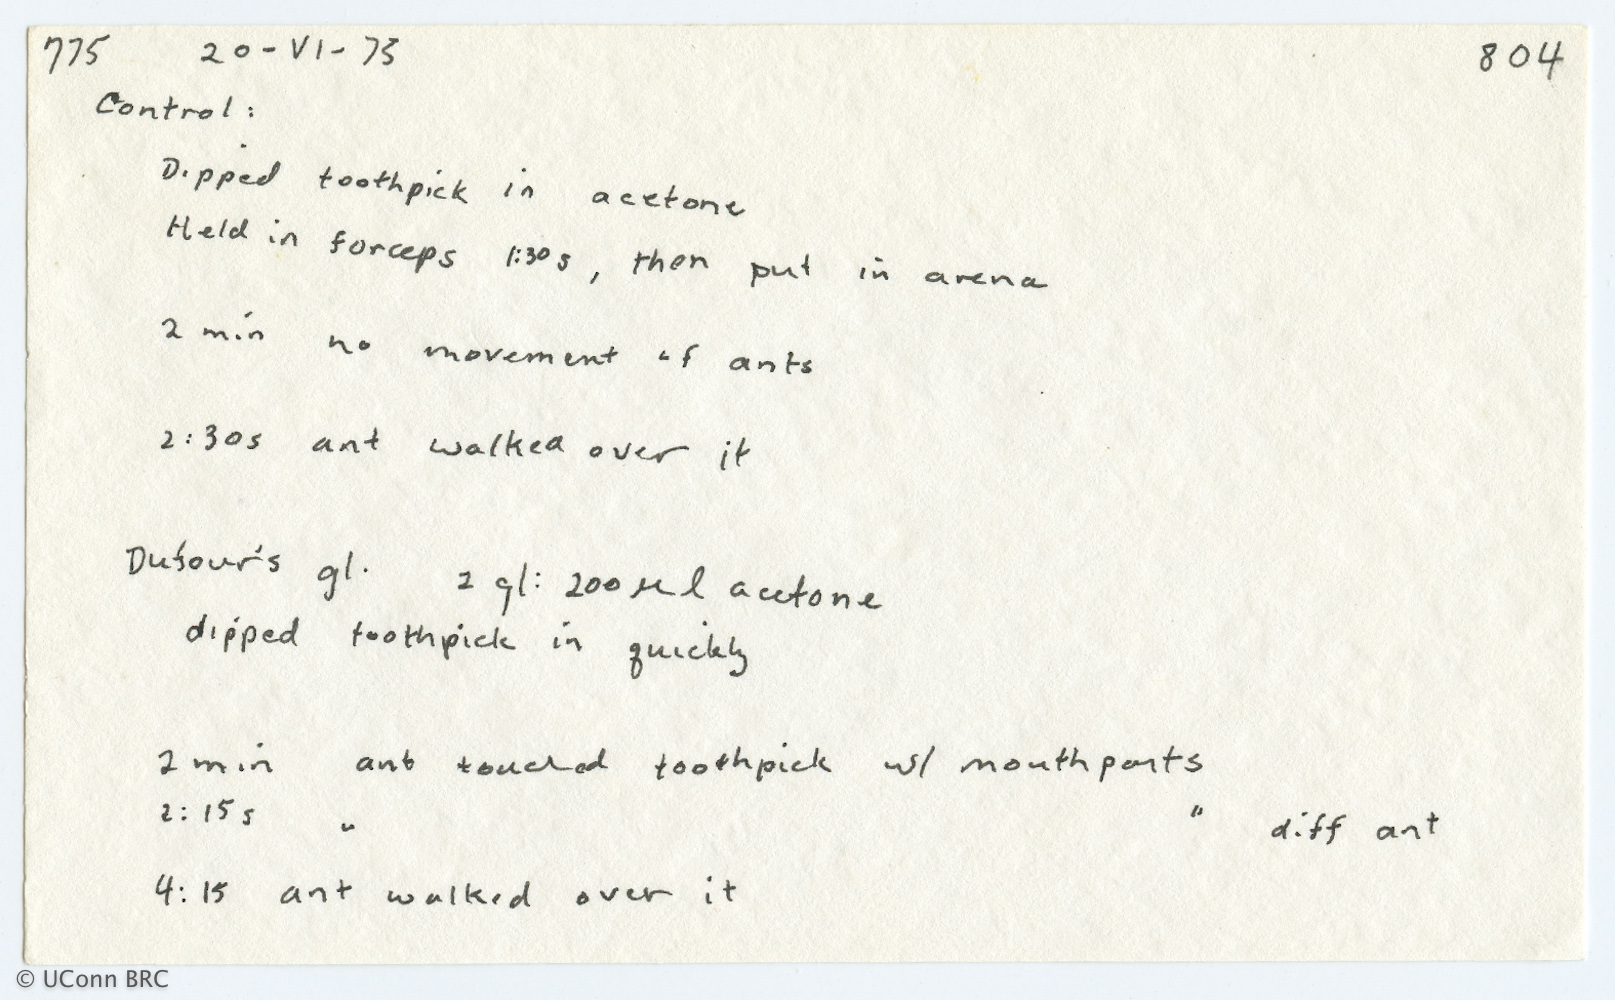 775 20-VI-73 804
Control:
Dipped toothpick in acetone
Held in forceps 1:30s, then put in arena
2 min no movement of ants
2:30s ant walked over it
Dufour's gl. 2 gl: 200 μl acetone
dipped toothpick in quickly
2 min ant touched toothpick w/ mouthparts
2:15s " " diff ant
4:15 ant walked over it
© UConn BRC